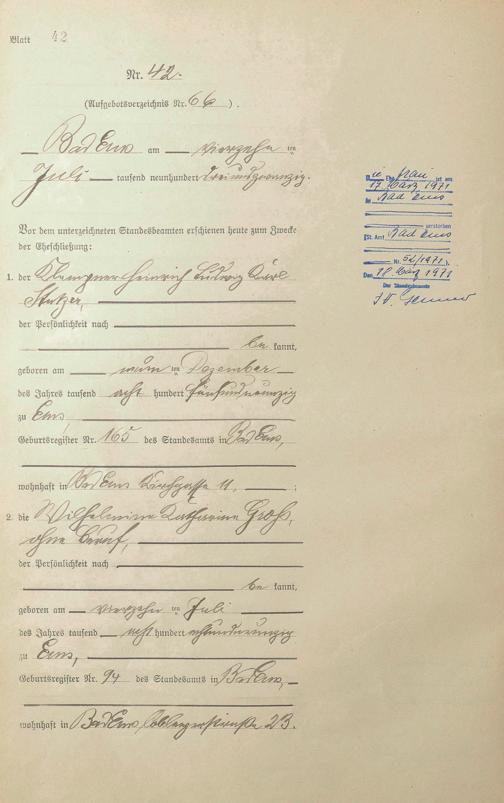 Blatt 42
Nr. 42.
(Aufgebotsverzeichnis Nr. 66).
Bad Ems am vierzehnten
Juli tausend neunhundert dreiundzwanzig.
Vor dem unterzeichneten Standesbeamten erschienen heute zum Zwecke
der Eheschließung:
1. der Klempner Heinrich Ludwig Karl
der Persönlichkeit nach
be kannt,
geboren am neunten Dezember
des Jahres tausend acht hundert fünfundneunzig
zu Ems
Geburtsregister Nr. 165 des Standesamts in Bad Ems,
wohnhaft in Bad Ems Kirchgasse 11, ;
2. die Wilhelmine Katharine Groß,
ohne Beruf,
der Persönlichkeit nach
be kannt,
geboren am vierzehnten Juli
des Jahres tausend acht hundert
zu Ems,
Geburtsregister Nr. 94 des Standesamts in Bad Ems,
wohnhaft in Bad Ems, Coblenzerstraße 23.
Ehefrau ist am
17. März 1971
in Bad Ems
verstorben
(St. Amt Bad Ems
Nr. 52/1971)
Den 18. März 1971
Der Standesbeamte